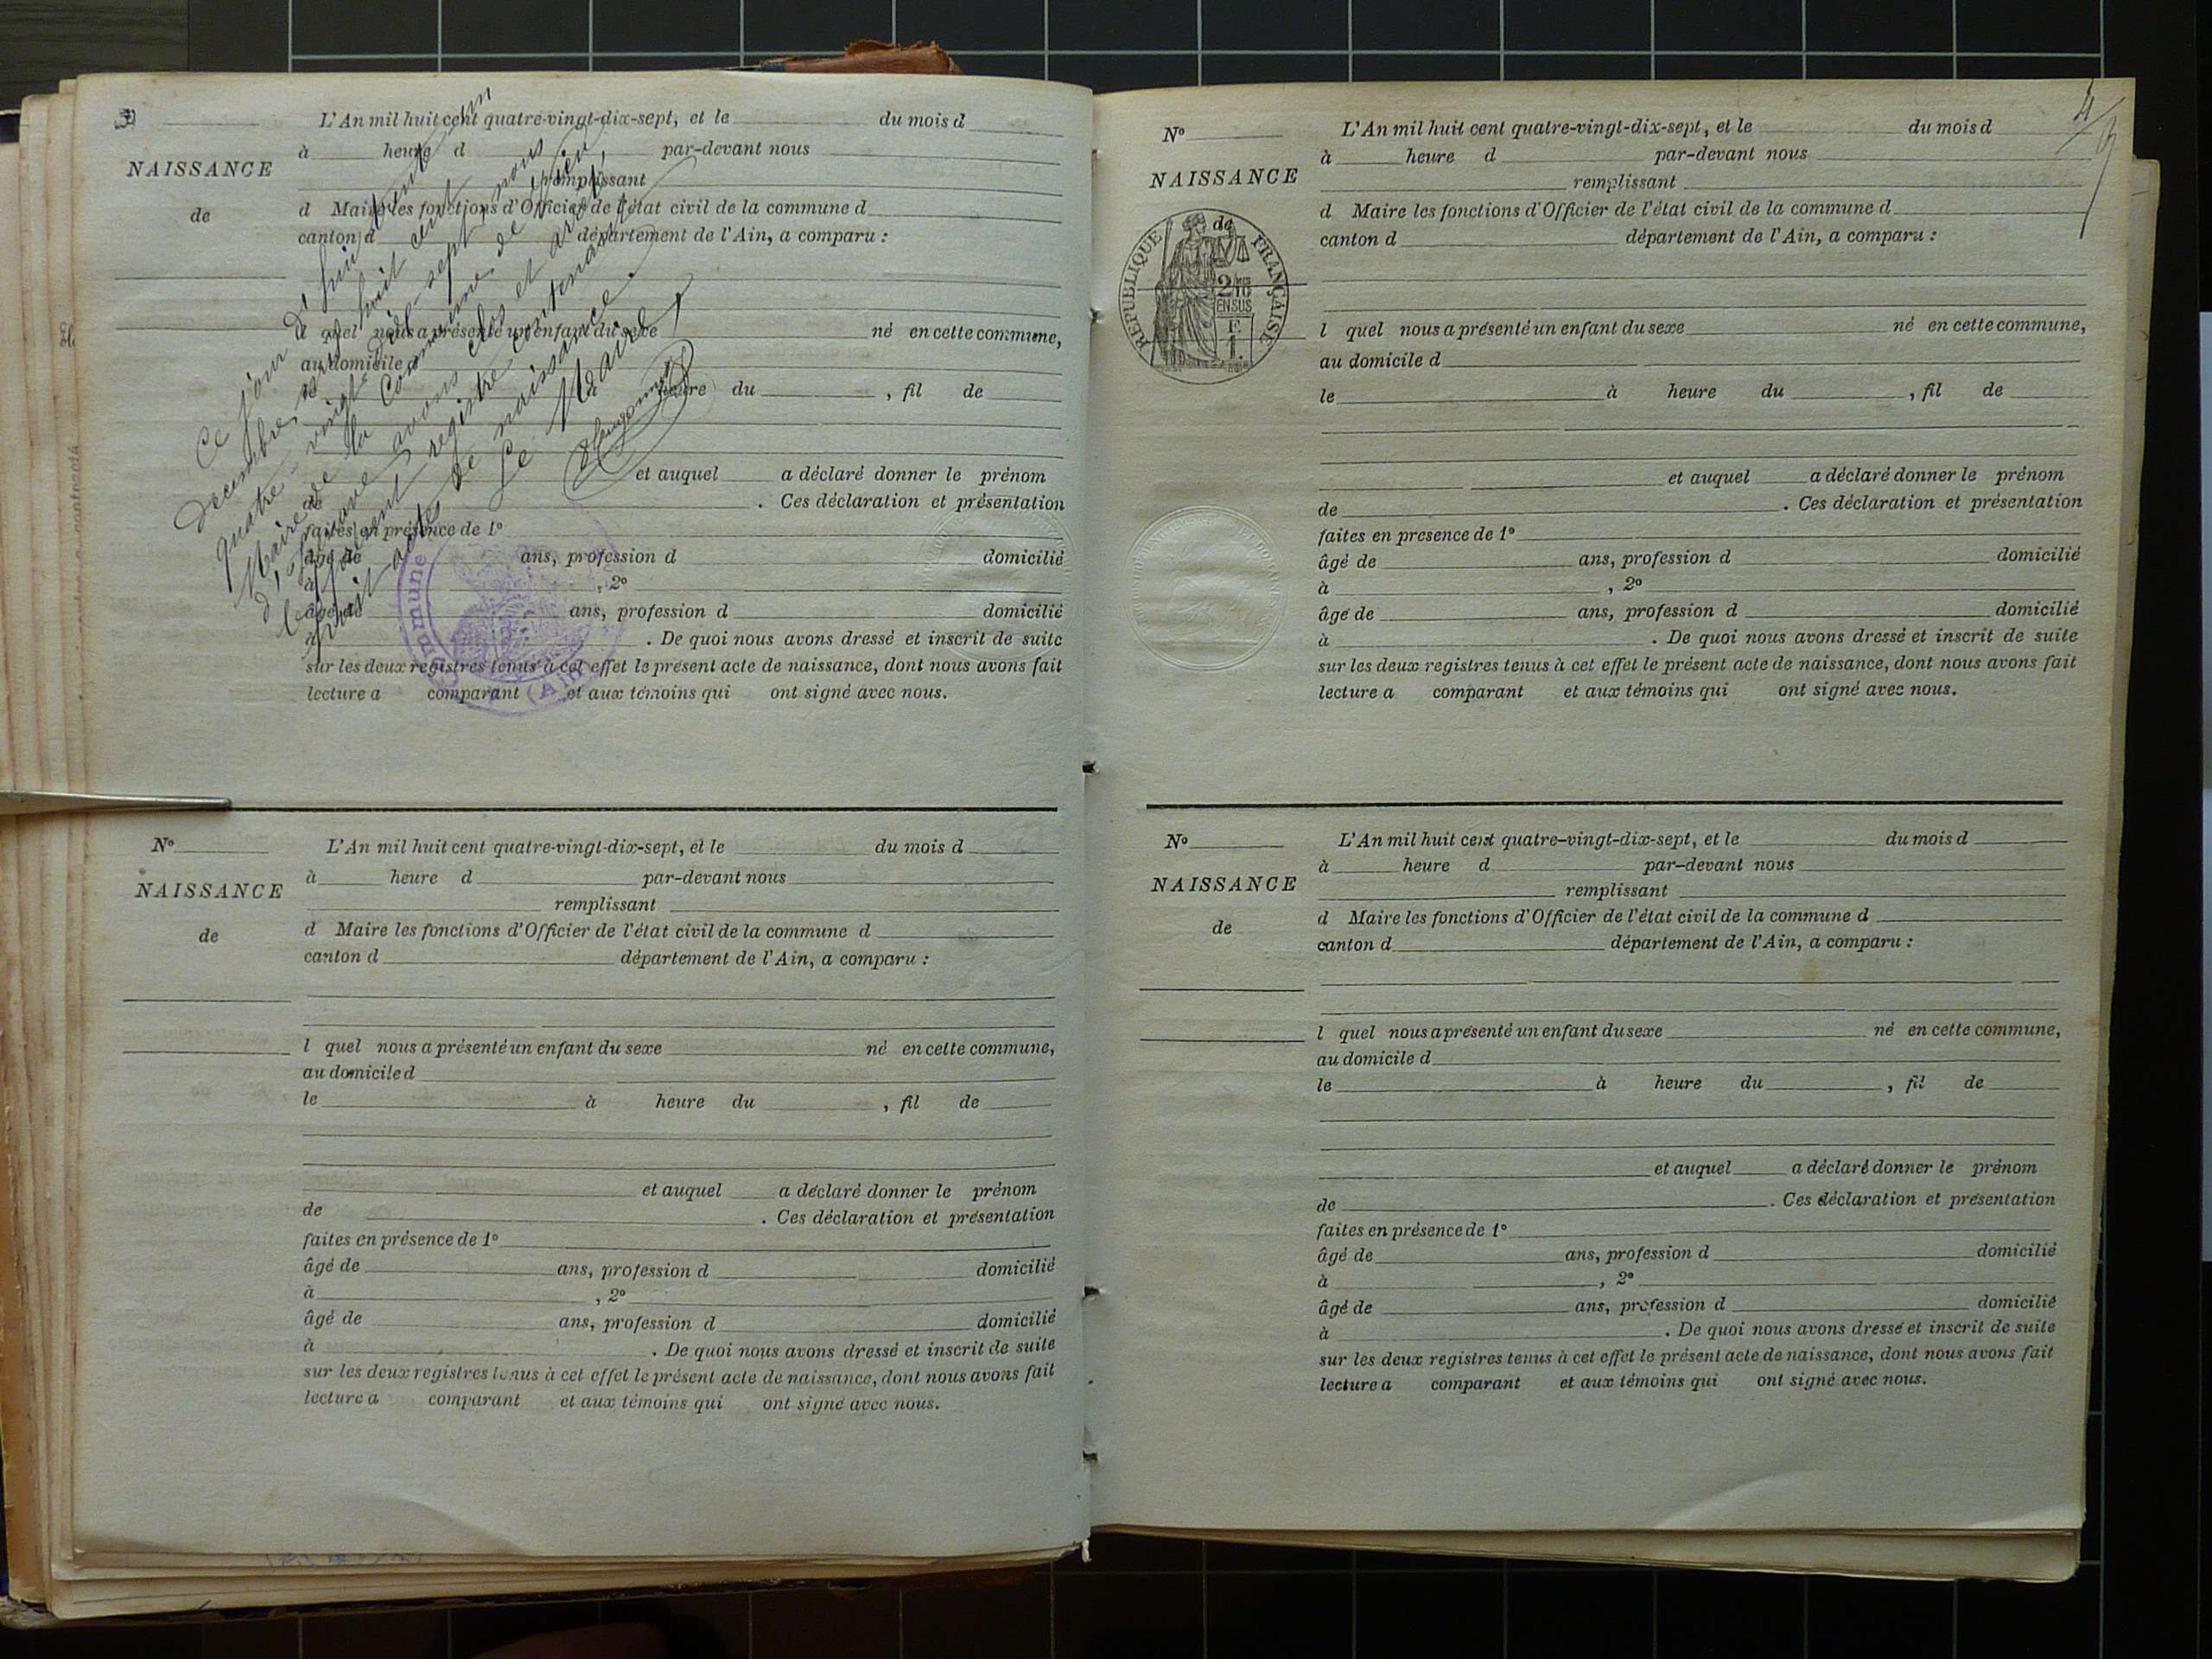 L'An mil huit cent quatre-vingt-dix-sept, et le du mois d
à heure d par-devant nous
NAISSANCE
remplissant
de
d Maire les fonctions d'Officier de l'état civil de la commune d
canton d département de l'Ain, a comparu :
l quel nous a présenté un enfant du sexe né en cette commune,
au domicile d
le à heure du , fil de
et auquel a déclaré donner le prénom
de . Ces déclaration et présentation
faites en présence de 1º
âgé de ans, profession d domicilié
à , 2º
âgé de ans, profession d domicilié
à . De quoi nous avons dressé et inscrit de suite
sur les deux registres tenus à cet effet le présent acte de naissance, dont nous avons fait
lecture a comparant et aux témoins qui ont signé avec nous.
Ce jour d'hui trente un
décembre mil huit cent
quatre-vingt-dix-sept, nous
Maire de la Commune de
d' avons clos et arrêté
le présent registre contenant
huit actes de naissance.
Le Maire
Commune
(Ain)
Nº
L'An mil huit cent quatre-vingt-dix-sept, et le du mois d
NAISSANCE
à heure d par-devant nous
remplissant
de
d Maire les fonctions d'Officier de l'état civil de la commune d
canton d département de l'Ain, a comparu :
l quel nous a présenté un enfant du sexe né en cette commune,
au domicile d
le à heure du , fil de
et auquel a déclaré donner le prénom
de . Ces déclaration et présentation
faites en présence de 1º
âgé de ans, profession d domicilié
à , 2º
âgé de ans, profession d domicilié
à . De quoi nous avons dressé et inscrit de suite
sur les deux registres tenus à cet effet le présent acte de naissance, dont nous avons fait
lecture a comparant et aux témoins qui ont signé avec nous.
4
Nº
L'An mil huit cent quatre-vingt-dix-sept, et le du mois d
à heure d par-devant nous
NAISSANCE
remplissant
de
d Maire les fonctions d'Officier de l'état civil de la commune d
canton d département de l'Ain, a comparu :
REPUBLIQUE FRANÇAISE
2/10
EN SUS
F.
1.
l quel nous a présenté un enfant du sexe né en cette commune,
au domicile d
le à heure du , fil de
et auquel a déclaré donner le prénom
de . Ces déclaration et présentation
faites en presence de 1º
âgé de ans, profession d domicilié
à , 2º
âgé de ans, profession d domicilié
à . De quoi nous avons dressé et inscrit de suite
sur les deux registres tenus à cet effet le présent acte de naissance, dont nous avons fait
lecture a comparant et aux témoins qui ont signé avec nous.
Nº
L'An mil huit cent quatre-vingt-dix-sept, et le du mois d
à heure d par-devant nous
NAISSANCE
remplissant
de
d Maire les fonctions d'Officier de l'état civil de la commune d
canton d département de l'Ain, a comparu :
l quel nous a présenté un enfant du sexe né en cette commune,
au domicile d
le à heure du , fil de
et auquel a déclaré donner le prénom
de . Ces déclaration et présentation
faites en présence de 1º
âgé de ans, profession d domicilié
à , 2º
âgé de ans, profession d domicilié
à . De quoi nous avons dressé et inscrit de suite
sur les deux registres tenus à cet effet le présent acte de naissance, dont nous avons fait
lecture a comparant et aux témoins qui ont signé avec nous.